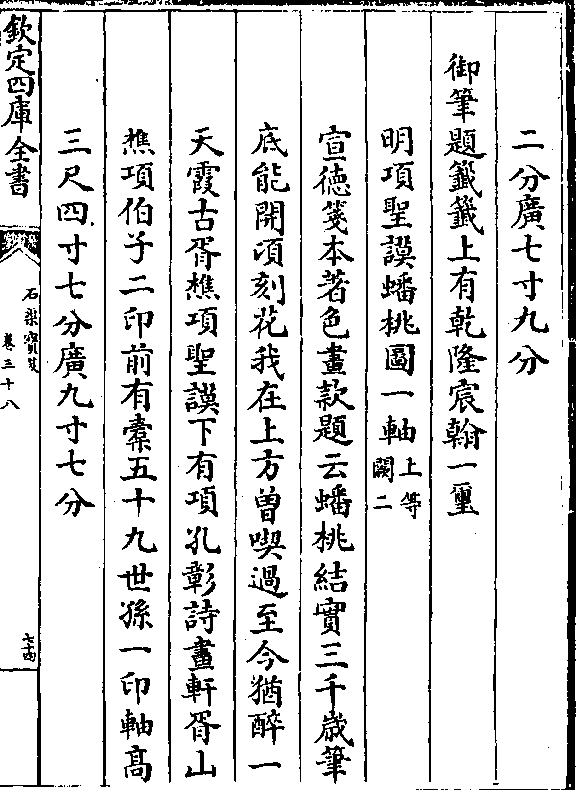 二分廣七寸九分
御筆題籤籤上有乾隆宸翰一璽
明項聖謨蟠桃圖一軸上等闕二
宣徳箋本著色畫款題云蟠桃結實三千歳筆
底能開頃刻花我在上方曽喫過至今猶醉一
天霞古胥樵項聖謨下有項孔彰詩畫軒胥山
樵項伯子二印前有橐五十九世孫一印軸髙
三尺四寸七分廣九寸七分
欽定四庫全書
石渠寳笈
卷三十八
七十四